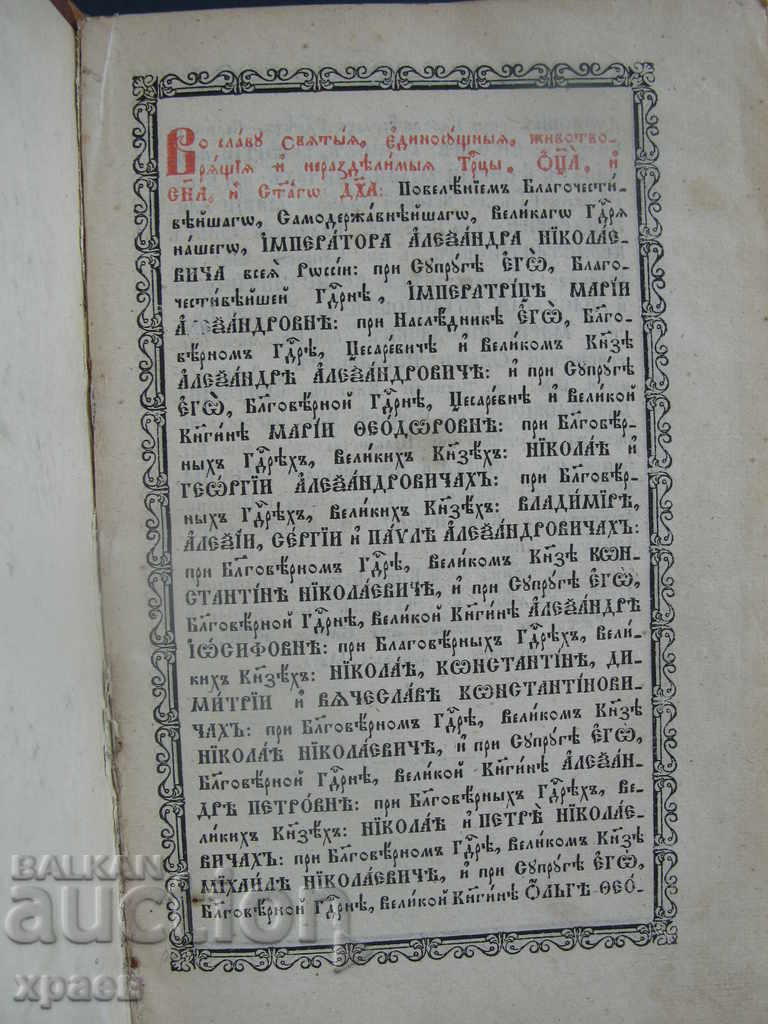 Во славу святыѧ, єдиносꙋщныѧ, животво-
рѧщїѧ и нераздѣлимыѧ Трⷪ҇цы, Ѻ҆ц҃а, и
Сн҃а, и Ст҃агѡ Дх҃а: Повелѣнїемъ Благочести-
вѣйшагѡ, Самодержавнѣйшагѡ, Великагѡ Гдⷭ҇рѧ
нашегѡ, ІМПЕРАТОРА АЛЕѮАНДРА НІКОЛАЕ-
ВИЧА всеѧ̀ Рѡссїи: при Сꙋпрꙋгѣ ЕГѠ̀, Благо-
честивѣйшей Гдⷭ҇рнѣ, ІМПЕРАТРІЦѢ МАРІИ
АЛЕѮАНДРОВНѢ: при Наслѣдникѣ ЕГѠ̀, Бл҃го-
вѣрномъ Гдⷭ҇рѣ, Цесаревичѣ и Великомъ Кн҃зѣ
АЛЕѮАНДРѢ АЛЕѮАНДРОВИЧѢ: и при Сꙋпрꙋгѣ
ЕГѠ̀, Бл҃говѣрной Гдⷭ҇рнѣ, Цесаревнѣ и Великой
Кн҃гинѣ МАРІИ ѲЕОДѠРОВНѢ: при Бл҃говѣр-
ныхъ Гдⷭ҇рѣхъ, Великихъ Кн҃зѣхъ: НІКОЛАѢ и
ГЕѠРГІИ АЛЕѮАНДРОВИЧАХЪ: при Бл҃говѣр-
ныхъ Гдⷭ҇рѣхъ, Великихъ Кн҃зѣхъ: ВЛАДИМІРѢ,
АЛЕѮІИ, СЕРГІИ и ПАѴЛѢ АЛЕѮАНДРОВИЧАХЪ:
при Бл҃говѣрномъ Гдⷭ҇рѣ, Великомъ Кн҃зѣ КѠН-
СТАНТІНѢ НІКОЛАЕВИЧѢ, и при Сꙋпрꙋгѣ ЕГѠ̀,
Бл҃говѣрной Гдⷭ҇рнѣ, Великой Кн҃гинѣ АЛЕѮАНДРѢ
ІѠСИФОВНѢ: при Благовѣрныхъ Гдⷭ҇рѣхъ, Вели-
кихъ Кн҃зѣхъ: НІКОЛАѢ, КѠНСТАНТІНѢ, ДИ-
МИТРІИ и ВѦЧЕСЛАВѢ КѠНСТАНТІНОВИ-
ЧАХЪ: при Бл҃говѣрномъ Гдⷭ҇рѣ, Великомъ Кн҃зѣ
НІКОЛАѢ НІКОЛАЕВИЧѢ, и при Сꙋпрꙋгѣ ЕГѠ̀,
Бл҃говѣрной Гдⷭ҇рнѣ, Великой Кн҃гинѣ АЛЕѮАН-
ДРѢ ПЕТРОВНѢ: при Бл҃говѣрныхъ Гдⷭ҇рѣхъ, Ве-
ликихъ Кн҃зѣхъ: НІКОЛАѢ и ПЕТРѢ̀ НІКОЛАЕ-
ВИЧАХЪ: при Бл҃говѣрномъ Гдⷭ҇рѣ, Великомъ Кн҃зѣ
МІХАИЛѢ НІКОЛАЕВИЧѢ, и при Сꙋпрꙋгѣ ЕГѠ̀,
Бл҃говѣрной Гдⷭ҇рнѣ, Великой Кн҃гинѣ ѺЛЬГѢ ѲЕО-
BALKAN
auction
храев